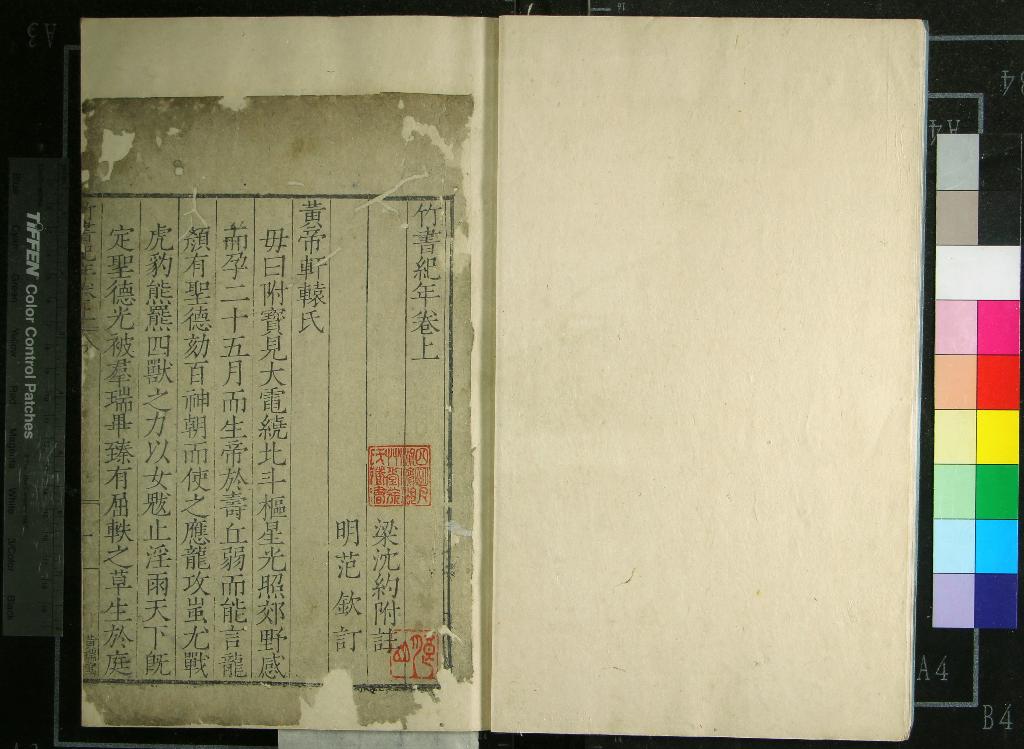 竹書紀年卷上
梁沈約附註
明范欽訂
黃帝軒轅氏
母曰附寶見大電繞北斗樞星光照郊野感
而孕二十五月而生帝於壽丘弱而能言龍
顏有聖德劾百神朝而使之應龍攻蚩尤戰
虎豹熊羆四獸之力以女魃止淫雨天下旣
定聖德光被羣瑞畢臻有屈軼之草生於庭
TIFFEN Color Control Patches
A4
B4
A3